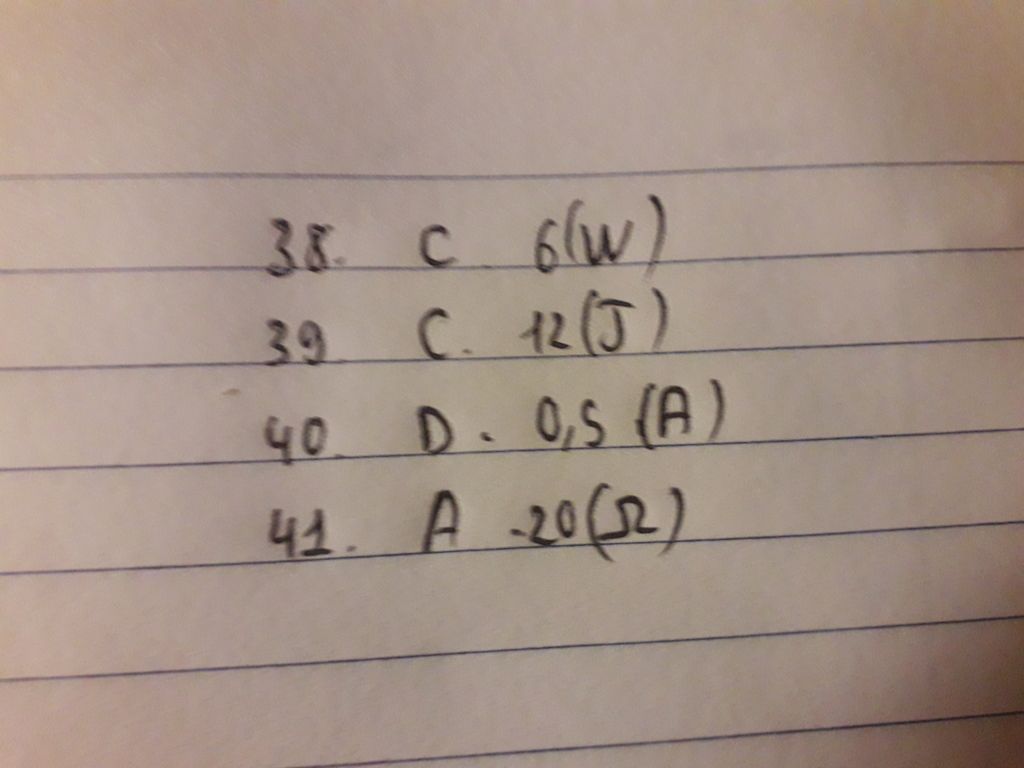 38. C. 6(W)
39. C. 12(J)
40. D. 0,5 (A)
41. A. 20(Ω)